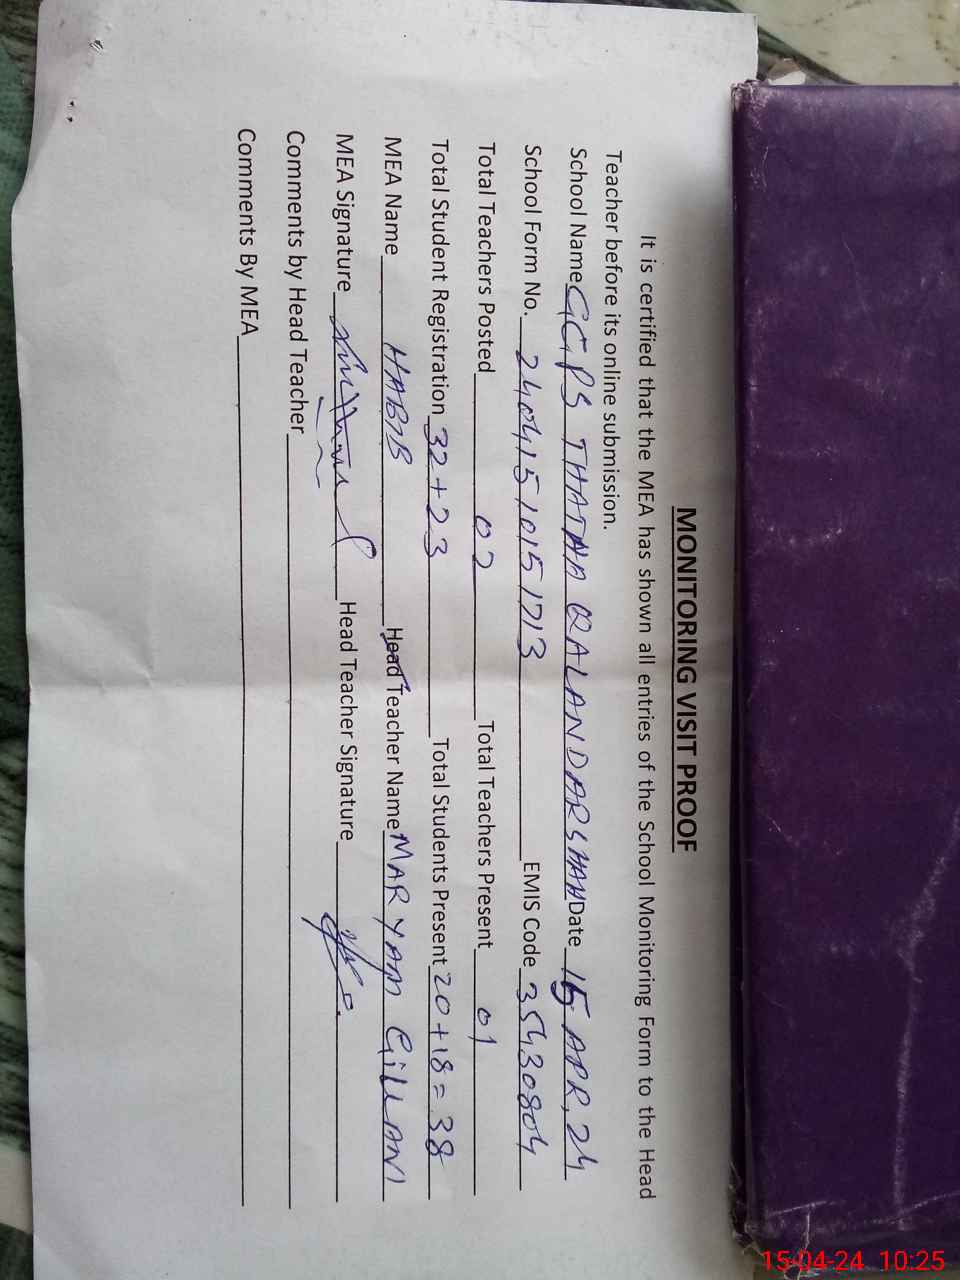 MONITORING VISIT PROOF
It is certified that the MEA has shown all entries of the School Monitoring Form to the Head
Teacher before its online submission.
School Name GGPS THATHA QALANDARSHAH Date 15 APR, 24
School Form No. 24041510151713 EMIS Code 35430804
Total Teachers Posted 02 Total Teachers Present 01
Total Student Registration 32+23 Total Students Present 20+18=38
MEA Name HABIB Head Teacher Name MARYAM GILLANI
MEA Signature Head Teacher Signature
Comments by Head Teacher
Comments By MEA
15-04-24 10:25